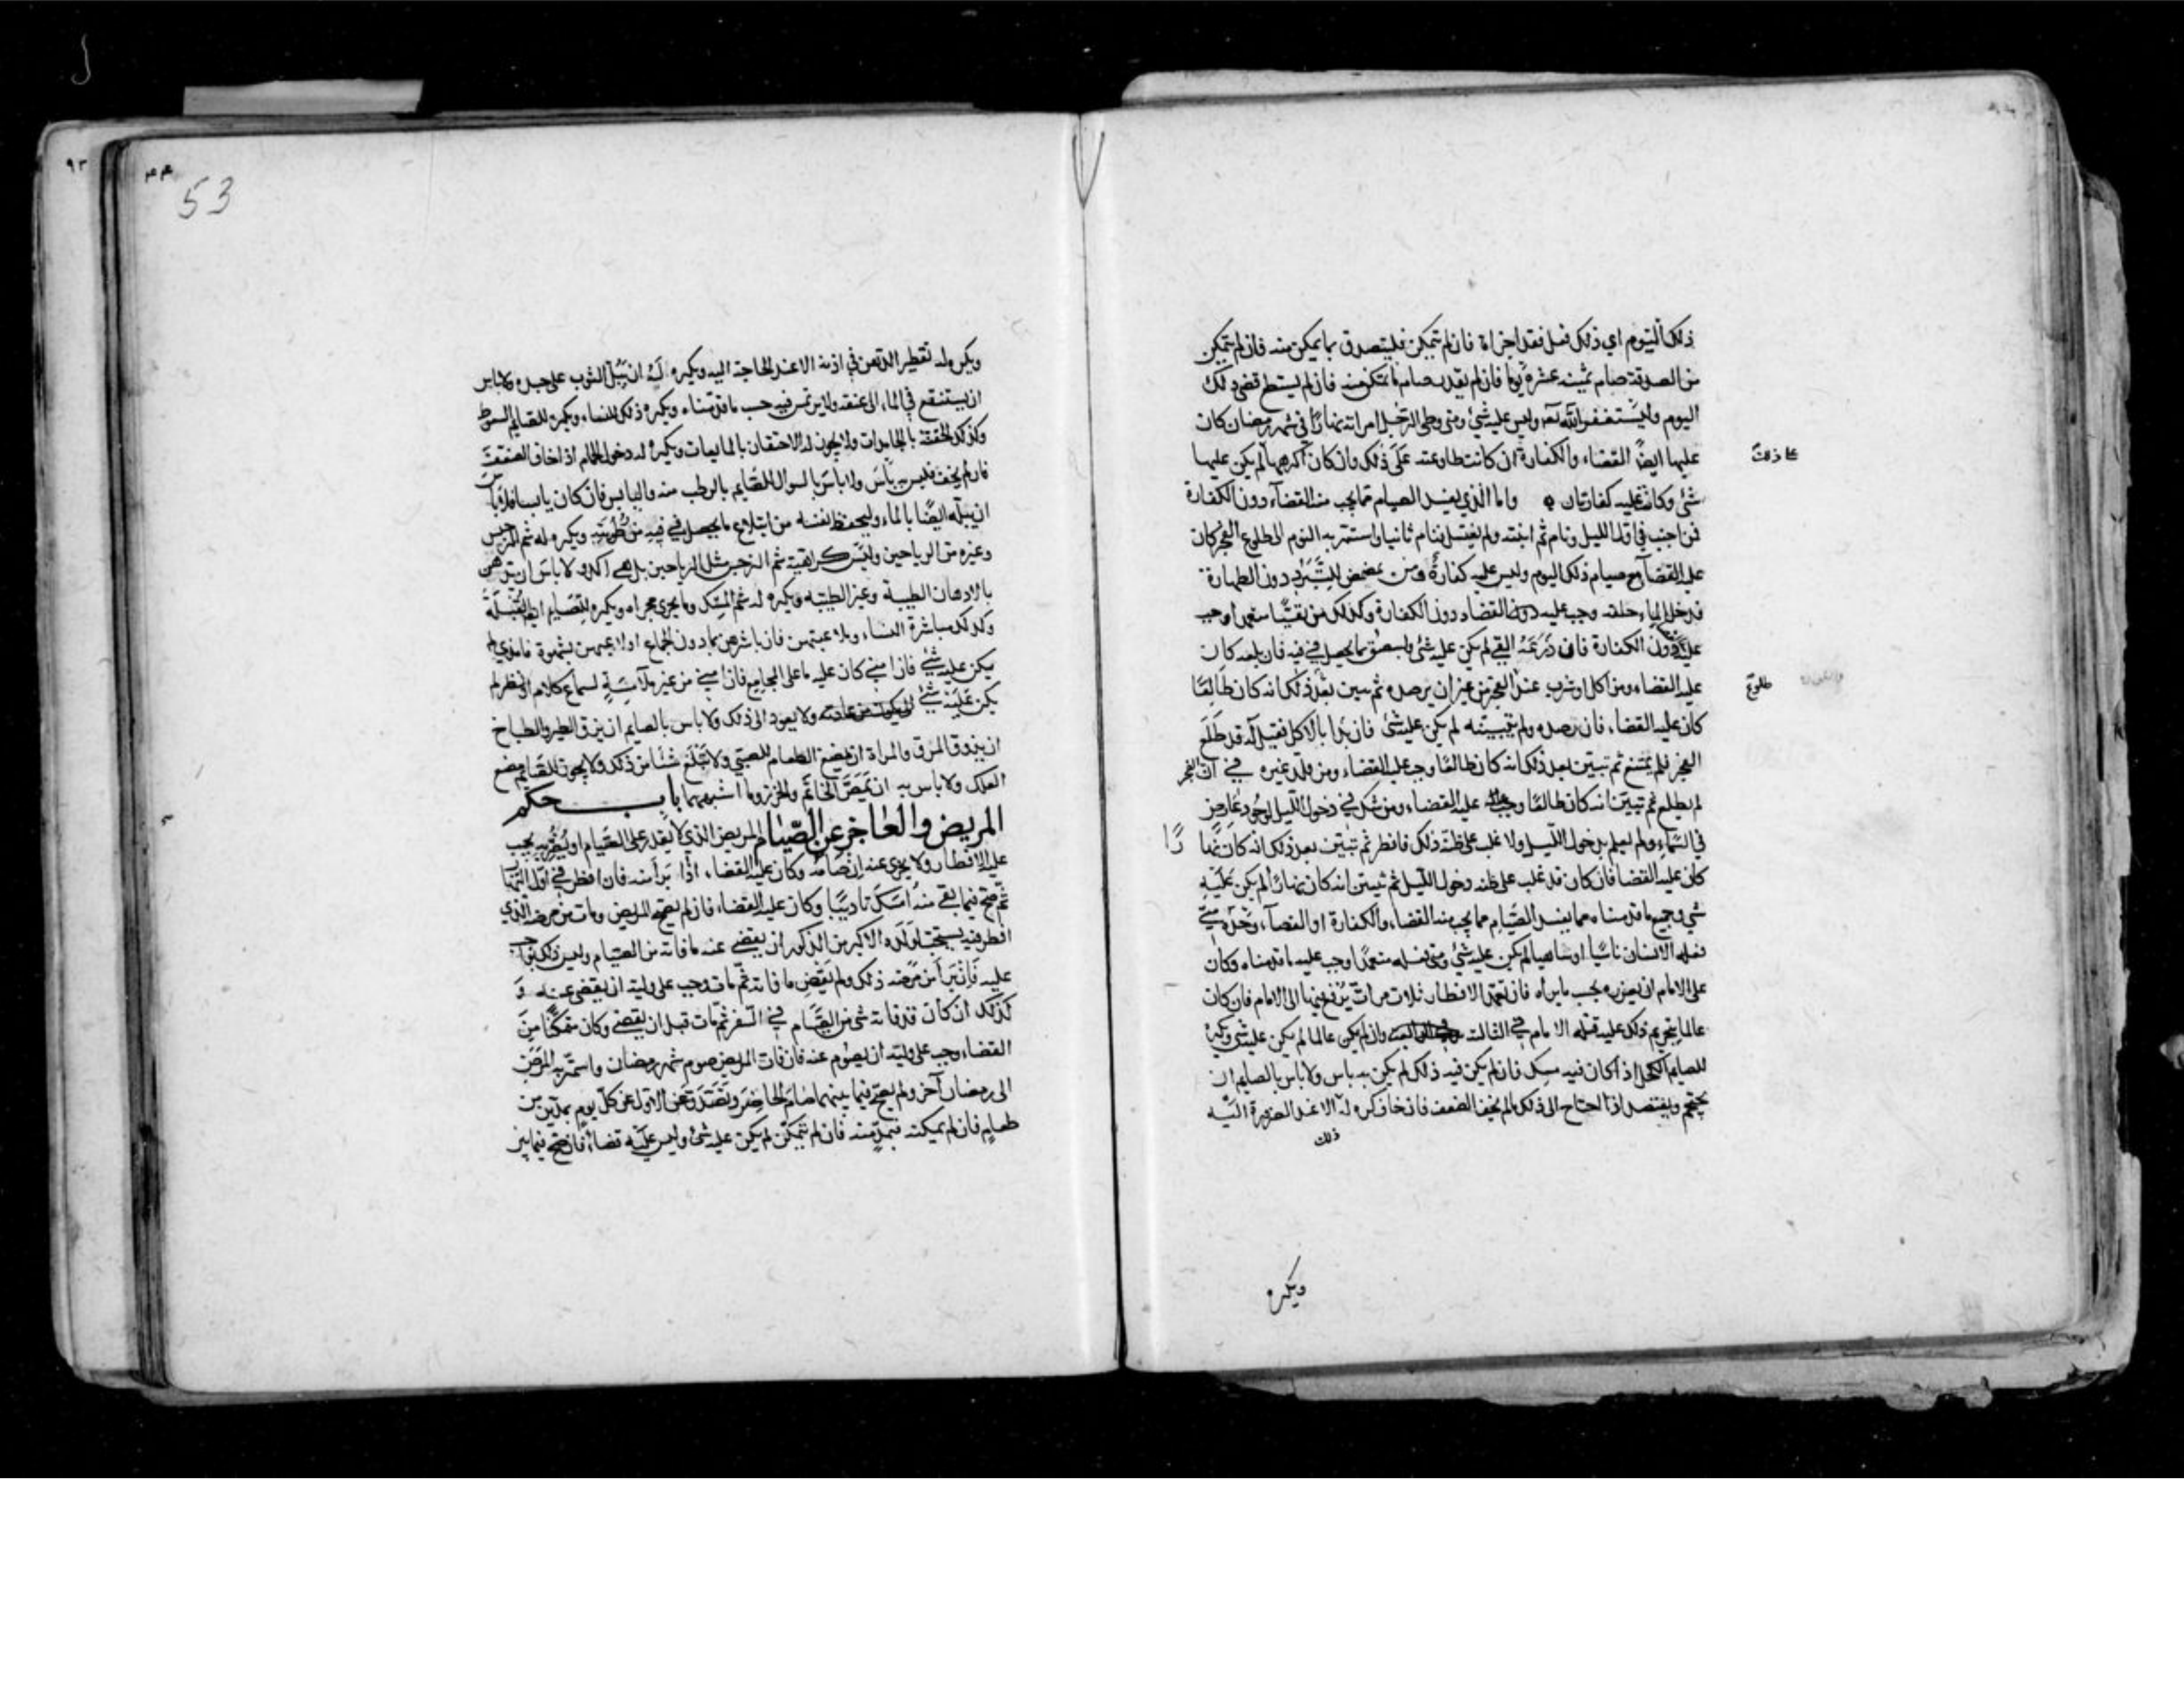 ذلك اليوم اي ذلك فعل فقد اجزاه فان لم يتمكن فليتصدق بما يمكن منه فان لم يتمكن
من الصدقة صام ثمنية عشرة يوما فان لم يقدر صام ما تمكن منه فان لم يستطع قضى ذلك
اليوم وليستغفر الله تعـ وليس عليه شئ ومتى وطى الرجل امراته نهارا في شهر رمضان كان
عليها ايضا القضاء والكفارة ان كانت طاوعته على ذلك وان كان اكرهها لم يكن عليها
على ذلك
شئ وكانت عليه كفارتان واما الذي يفسد الصيام مما يجب منه القضاء دون الكفارة
فمن اجنب في اول الليل ونام ثم انتبه ولم يغتسل فنام ثانيا واستمر به النوم الى طلوع الفجر كان
عليه القضاء مع صيام ذلك اليوم وليس عليه كفارة ومن تمضمض للتبرد دون الطهارة
فدخل الماء حلقه وجب عليه القضاء دون الكفارة وكذلك من تقيا متعمدا وجب
عليه دون الكفارة فان ذرعه القي لم يكن عليه شئ وليبصق ما يحصل في فيه فان بلعه كان
عليه القضاء ومن اكل او شرب عند الفجر من غير ان يرصده ثم تبين بعد ذلك انه كان طالعا
طلوع
كان عليه القضاء فان رصده ولم يتبينه لم يكن عليه شئ فان بدا بالاكل فقيل له قد طلع
الفجر فلم يمتنع ثم تبين بعد ذلك انه كان طالعا وجب عليه القضاء ومن قلد غيره في ان الفجر
لم يطلع ثم تبين انه كان طالعا وجب عليه القضاء ومن شك في دخول الليل لوجود عارض
في السماء ولم يعلم بدخول الليل ولا غلب على ظنه ذلك فافطر ثم تبين بعد ذلك انه كان نهارا
كان عليه القضا فان كان قد غلب على ظنه دخول الليل ثم تبين انه كان نهارا لم يكن عليه
شي وجميع ما قدمناه مما يفسد الصيام مما يجب منه القضاء والكفارة او القضاء وحده متى
فعله الانسان ناسيا او ساهيا لم يكن عليه شئ ومتى فعله متعمدا وجب عليه ما قدمناه وكان
على الامام ان يعزره بحسب ما يراه فان تعمد الافطار ثلاث مرات يرفع فيها الى الامام فان كان
عالما بتحريم ذلك عليه قتله الامام في الثالثة وان لم يكن عالما لم يكن عليه شي ويكره
للصايم الكحل اذا كان فيه مسك فان لم يكن فيه ذلك لم يكن به باس ولا باس بالصايم ان
يحتجم ويفتصد اذا احتاج الى ذلك ما لم يخف الضعف فان خاف كره له الا عند الضرورة اليه
ذلك
ويكره
٩٣
53
ويكره له تقطير الدهن في اذنه الا عند الحاجة اليه ويكره له ان يبل الثوب على جسده ولا باس
ان يستنقع في الماء الى عنقه ولا يرتمس فيه حسب ما قدمناه ويكره ذلك للنساء ويكره للصايم السعوط
وكذلك الحقنة بالجامدات ولا يجوز له الاحتقان بالمايعات ويكره له دخول الحمام اذا خاف الضعف
فان لم يخف فليس به باس ولا باس بالسواك للصايم بالرطب منه واليابس فان كان يابسا فلا باس
ان يبله ايضا بالماء وليحفظ نفسه من ابتلاع ما يحصل في فيه من رطوبته ويكره له شم النرجس
وغيره من الرياحين وليس كراهية شم النرجس مثل الرياحين بل هي اكد ولا باس ان يتدهن
بالادهان الطيبة وغير الطيبه ويكره له شم المسك وما يجري مجراه ويكره للصايم ايضا القبلة
وكذلك مباشرة النساء وملاعبتهن فان باشرهن بما دون الجماع او لاعبهن بشهوة فامذى لم
يكن عليه شئ فان امنى كان عليه ما على المجامع فان امنى من غير ملامسة لسماع كلام او نظر لم
يكن عليه شئ ولا يعود الى ذلك ولا باس بالصايم ان يزق الطير والطباخ
ان يذوق المرق والمراة ان تمضغ الطعام للصبي ولا تبلع شئا من ذلك ولا يجوز للصايم مضغ
العلك ولا باس به ان يمص الخاتم والخرز وما اشبههما باب حكم
المريض والعاجز عن الصيام المريض الذي لا يقدر على الصيام او يضر به يجب
عليه الافطار ولا يجزي عنه ان صامه وكان عليه القضاء اذا برا منه فان افطر في اول النهار
ثم صح فيما بقى منه امسك تاديبا وكان عليه القضاء فان لم يصح المريض ومات من مرضه الذي
افطر فيه يستحب لولده الاكبر من الذكور ان يقضي عنه ما فاته من الصيام وليس ذلك بواجب
عليه فان برا من مرضه ذلك ولم يقض ما فاته ثم مات وجب على وليه ان يقضى عنه و
كذلك ان كان قد فاته شئ من الصيام في السفر ثم مات قبل ان يقضي وكان متمكنا من
القضاء وجب على وليه ان يصوم عنه فان فات المريض صوم شهر رمضان واستمر به المرض
الى رمضان آخر ولم يصح فيما بينهما صام الحاضر وتصدق عن الاول عن كل يوم بمدين من
طعام فان لم يمكنه فبمد منه فان لم يتمكن لم يكن عليه شئ وليس عليه قضاء فان صح فيما بين